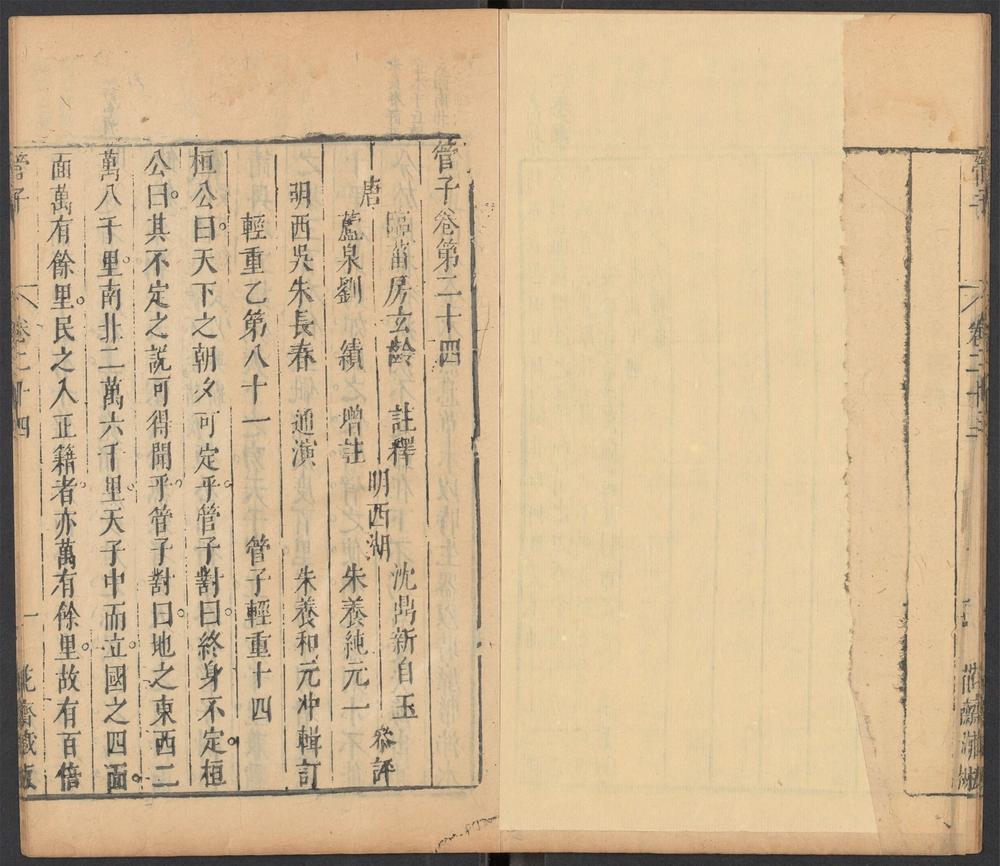 管子
卷二十三
管子卷第二十四
唐 臨菑房玄齡 註釋 沈鼎新自玉
蘆泉劉績 增註 明西湖 朱養純元一 叅評
明西吳朱長春 通演 朱養和元冲輯訂
輕重乙第八十一 管子輕重十四
桓公曰天下之朝夕可定乎管子對曰終身不定桓
公曰其不定之說可得聞乎管子對曰地之東西二
萬八千里南北二萬六千里天子中而立國之四面
面萬有餘里民之入正籍者亦萬有餘里故有百倍
管子 卷二十四 一 花齋藏板